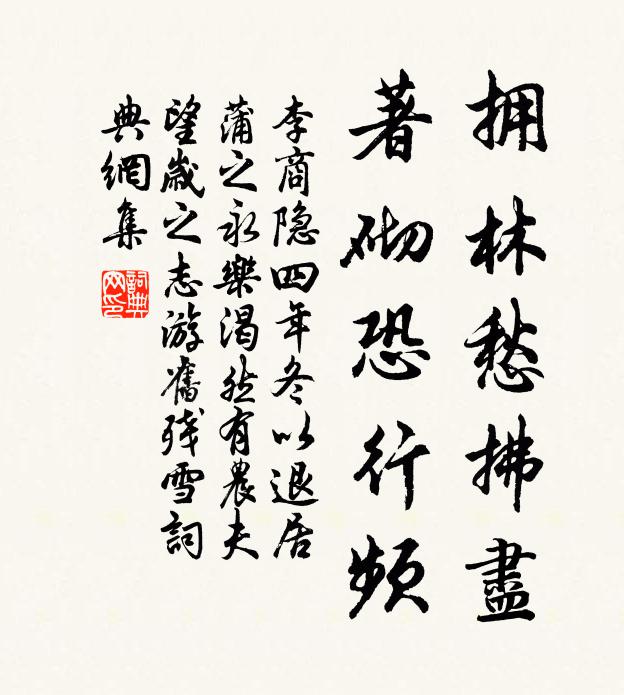 拥林愁拂盡
著砌恐行頻
李商隐四年冬以退居
蒲之永樂渴然有農夫
望歲之志游舊残雪詞
典網集
詞典
网印